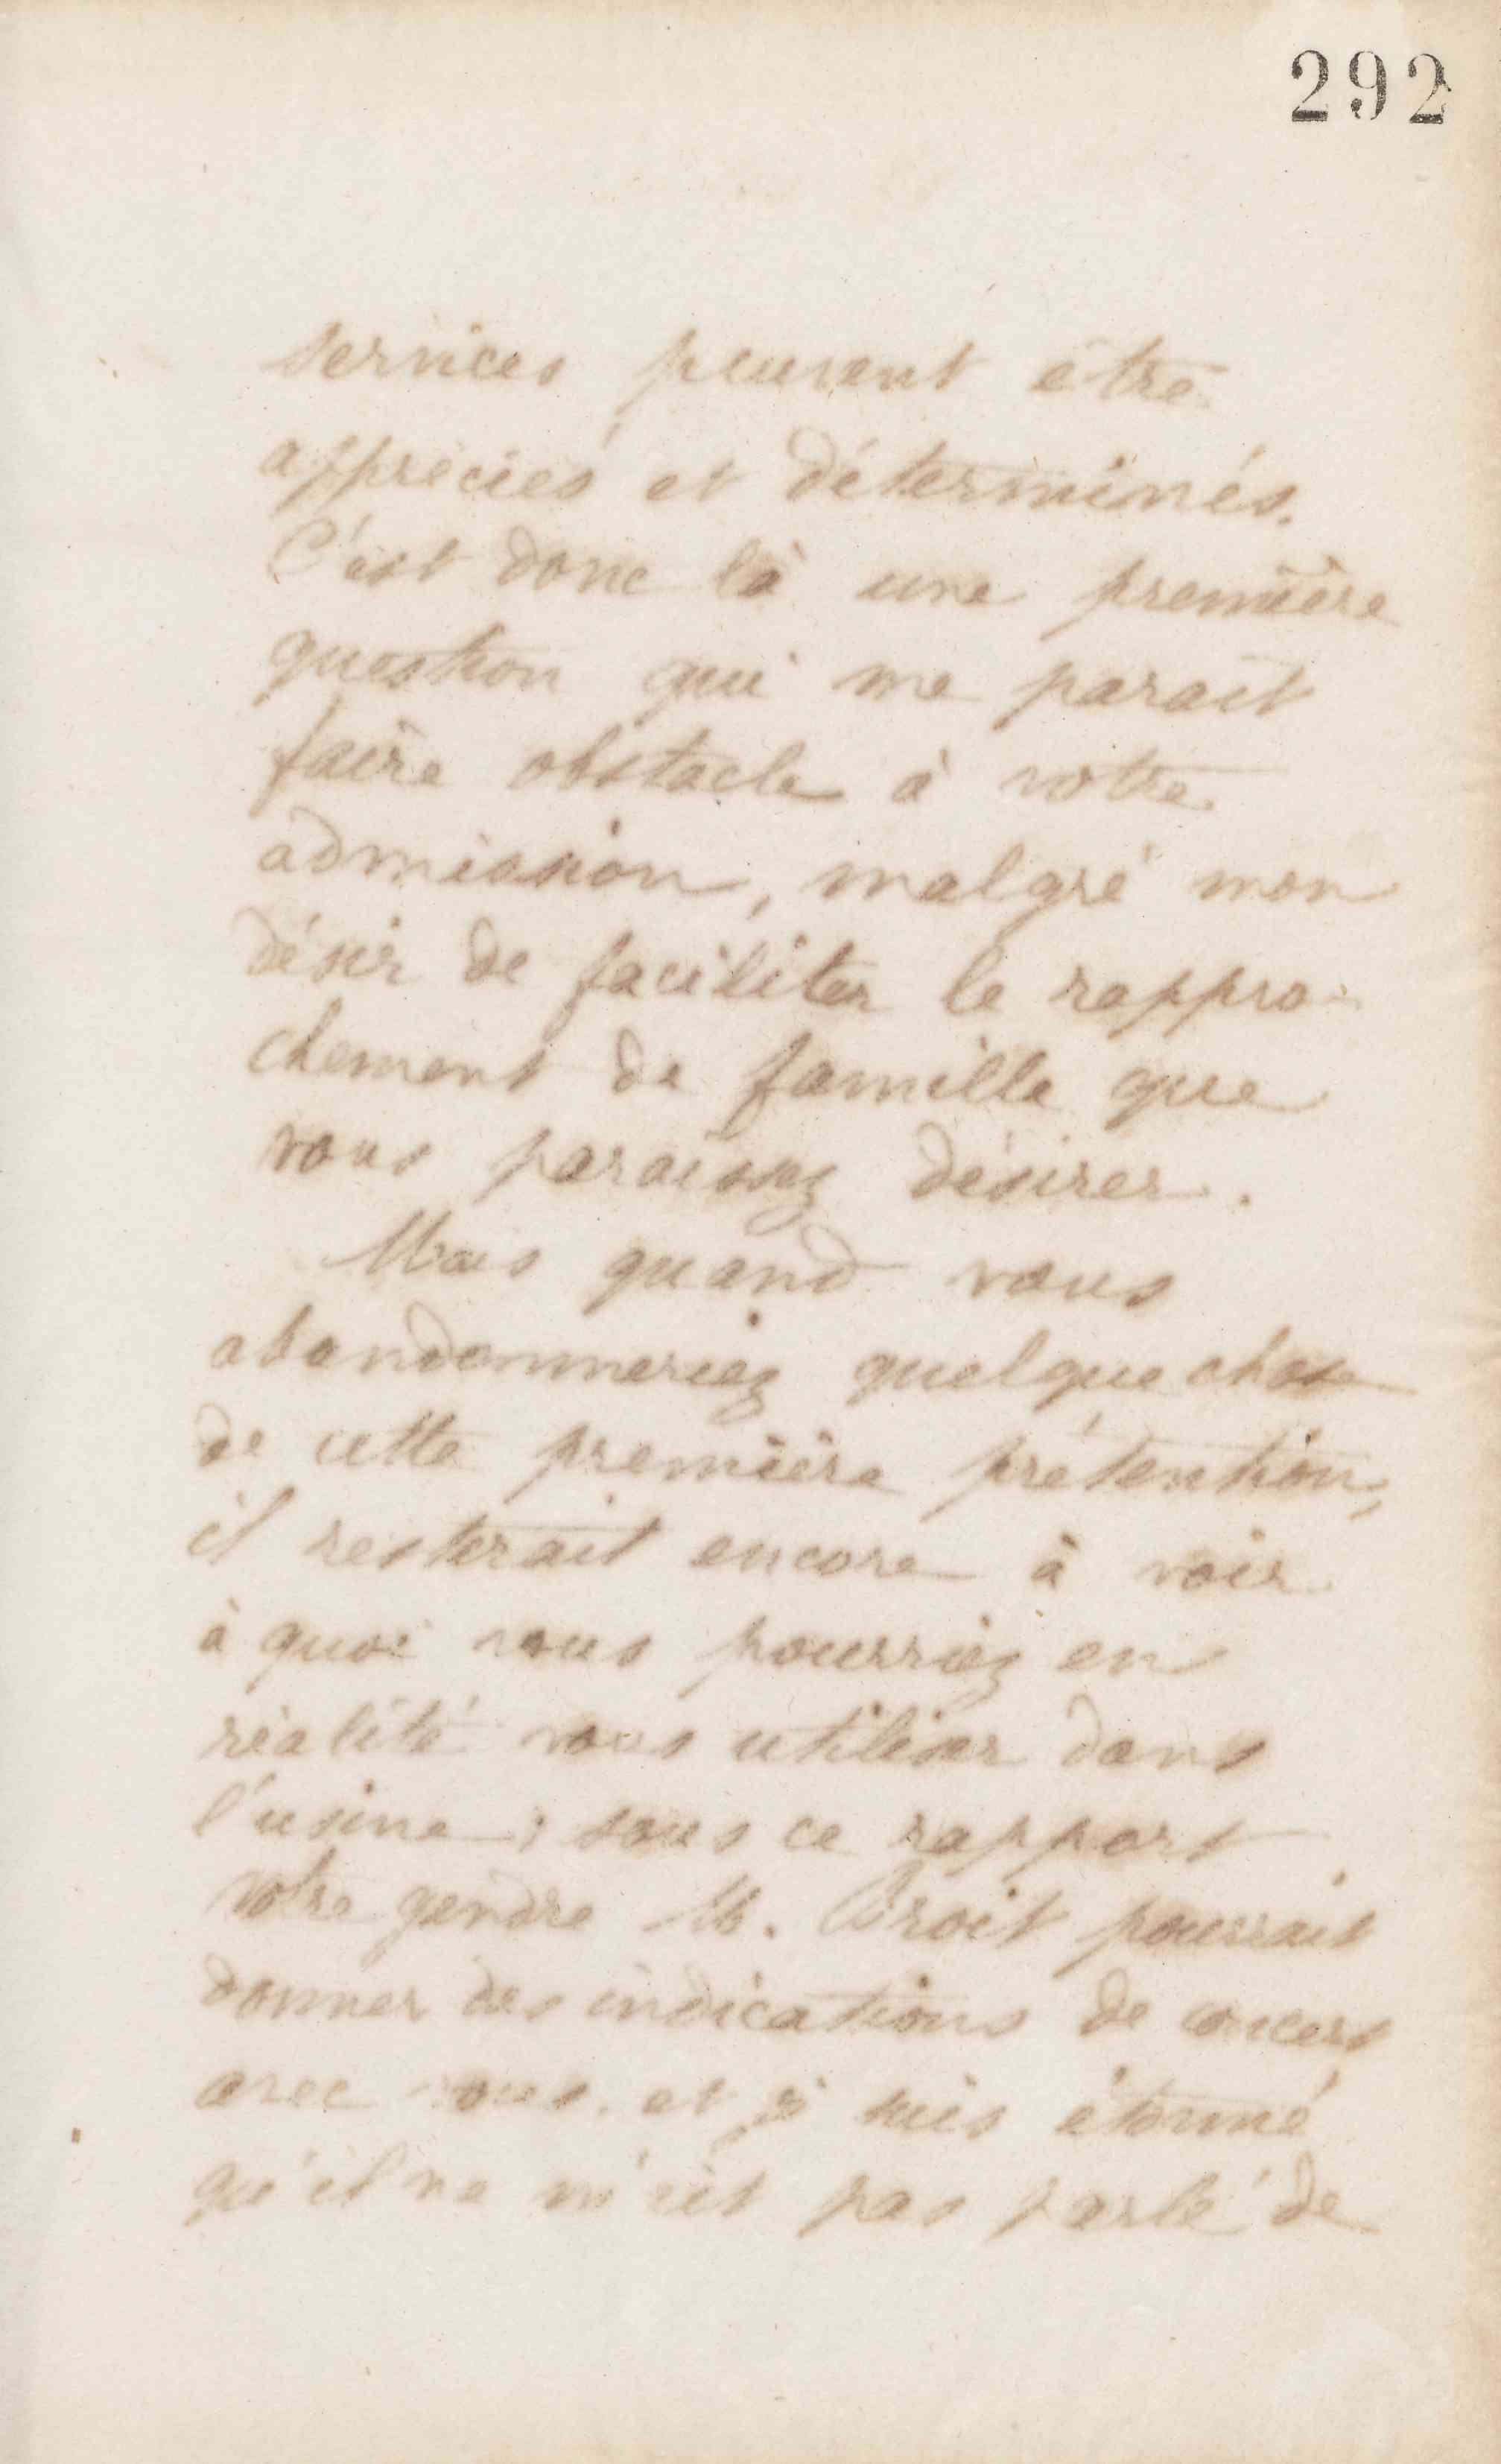 292
services peuvent être
appréciés et déterminés.
C'est donc là une première
question qui me parait
faire obstacle à votre
admission, malgré mon
désir de faciliter le rappro-
chement de famille que
vous paraissez désirer.
Mais quand vous
abandonneriez quelque chose
de cette première prétention,
il resterait encore à voir
à quoi vous pourriez en
réalité vous utiliser dans
l'usine; sous ce rapport
votre gendre M. pourrait
donner des indications de concert
avec vous, et je suis étonné
qu'il ne m'ait pas parlé de